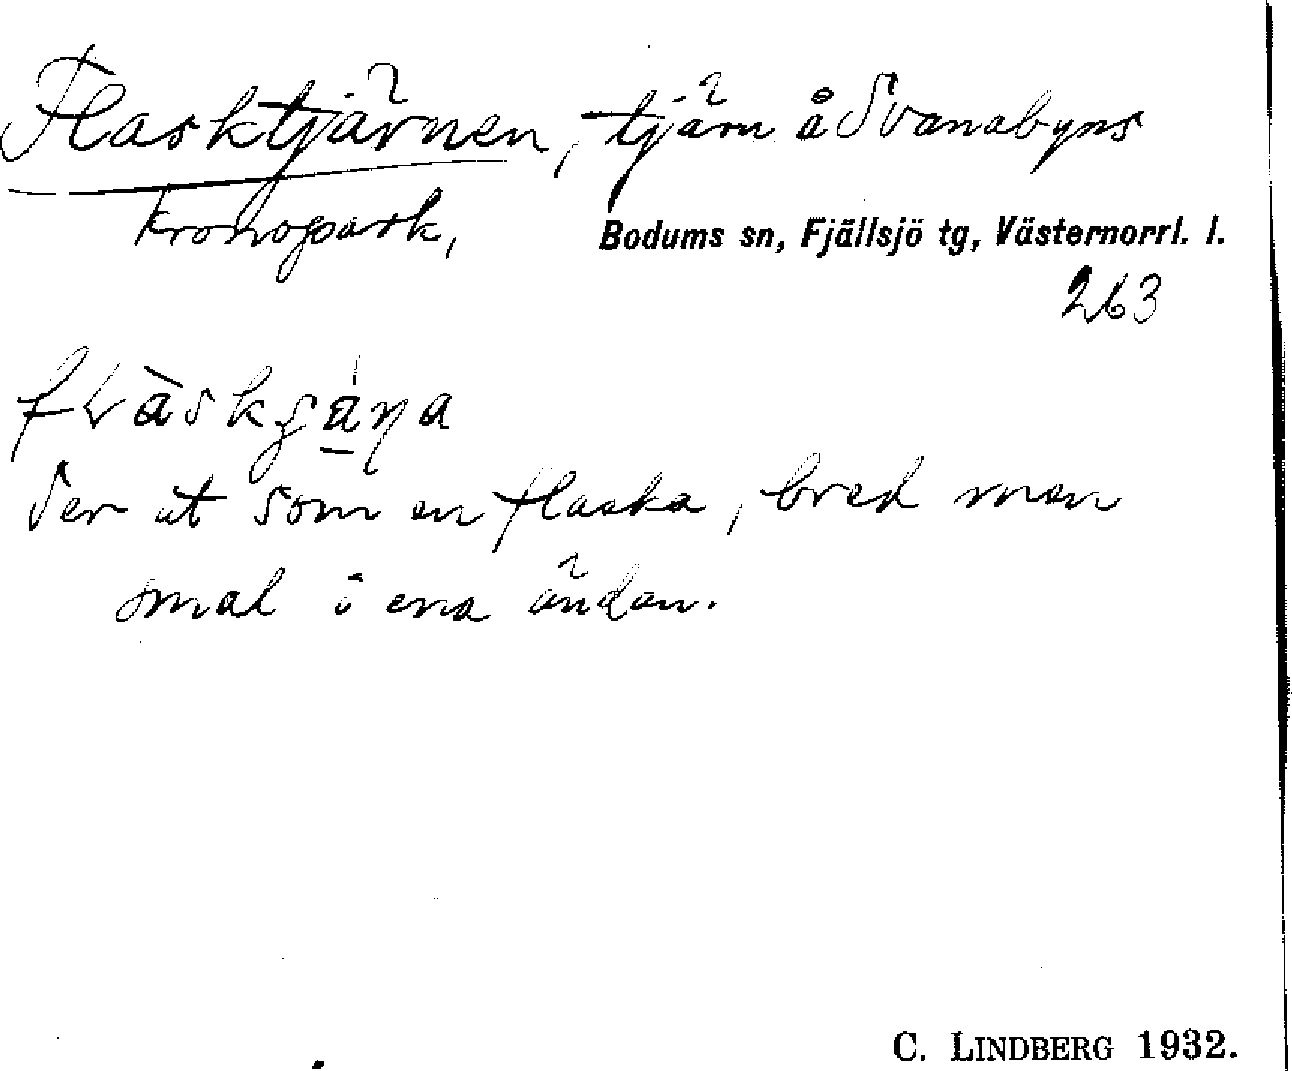 Flasktjärnen, tjärn å Svanabyns
kronopark, Bodums sn, Fjällsjö tg, Västernorrl. l.
263
Ser ut som en flaska, bred men
smal i ena ändan.
C. LINDBERG 1932.